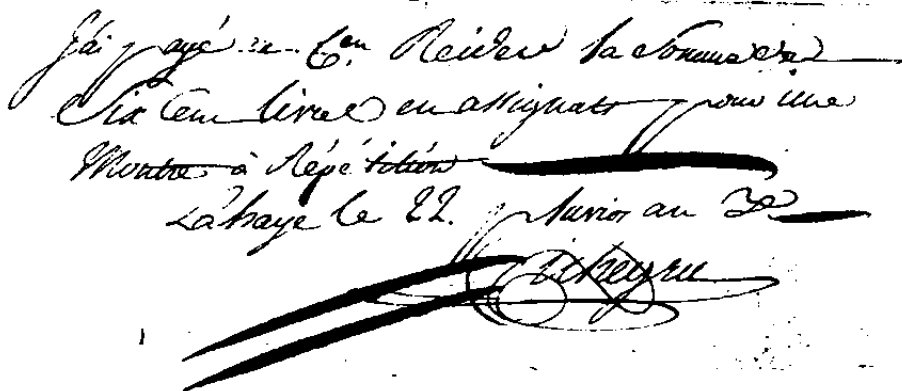 J'ai payé au Cen. Reider la Somme de
Six Cent livres en assignats pour une
Montre à Répétition
Lahaye le 22. pluvios an 3e